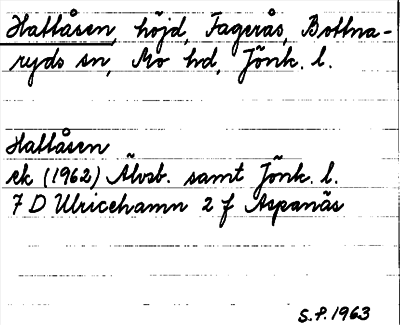 Hattåsen, höjd, Fagerås, Bottna-
ryds sn, Mo hd, Jönk. l.
Hattåsen
ek (1962) Älvsb. samt Jönk. l.
7 D Ulricehamn 2 f Aspanäs
S.P. 1963